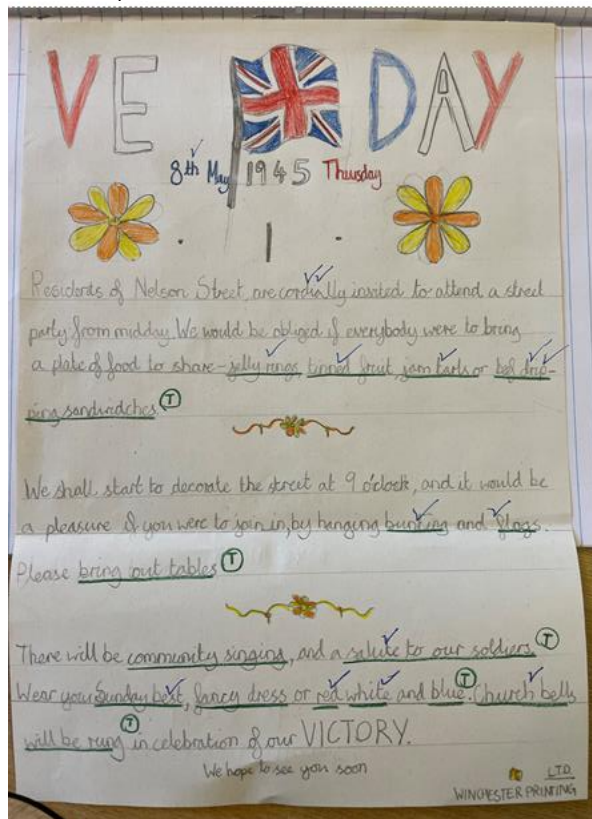 VE DAY
8th May 1945 Thursday
Residents of Nelson Street, are cordially invited to attend a street
party from midday. We would be obliged if everybody were to bring
a plate of food to share - jelly rings, tinned fruit, jam tarts or beef drip-
ping sandwidches. T
We shall start to decorate the street at 9 o'clock, and it would be
a pleasure if you were to join in, by hanging bunting and flags.
Please bring out tables T
There will be community singing, and a salute to our soldiers. T
Wear your Sunday best, fancy dress or red white and blue. T Church bells
will be rung T in celebration of our VICTORY.
We hope to see you soon
LTD.
WINCHESTER PRINTING